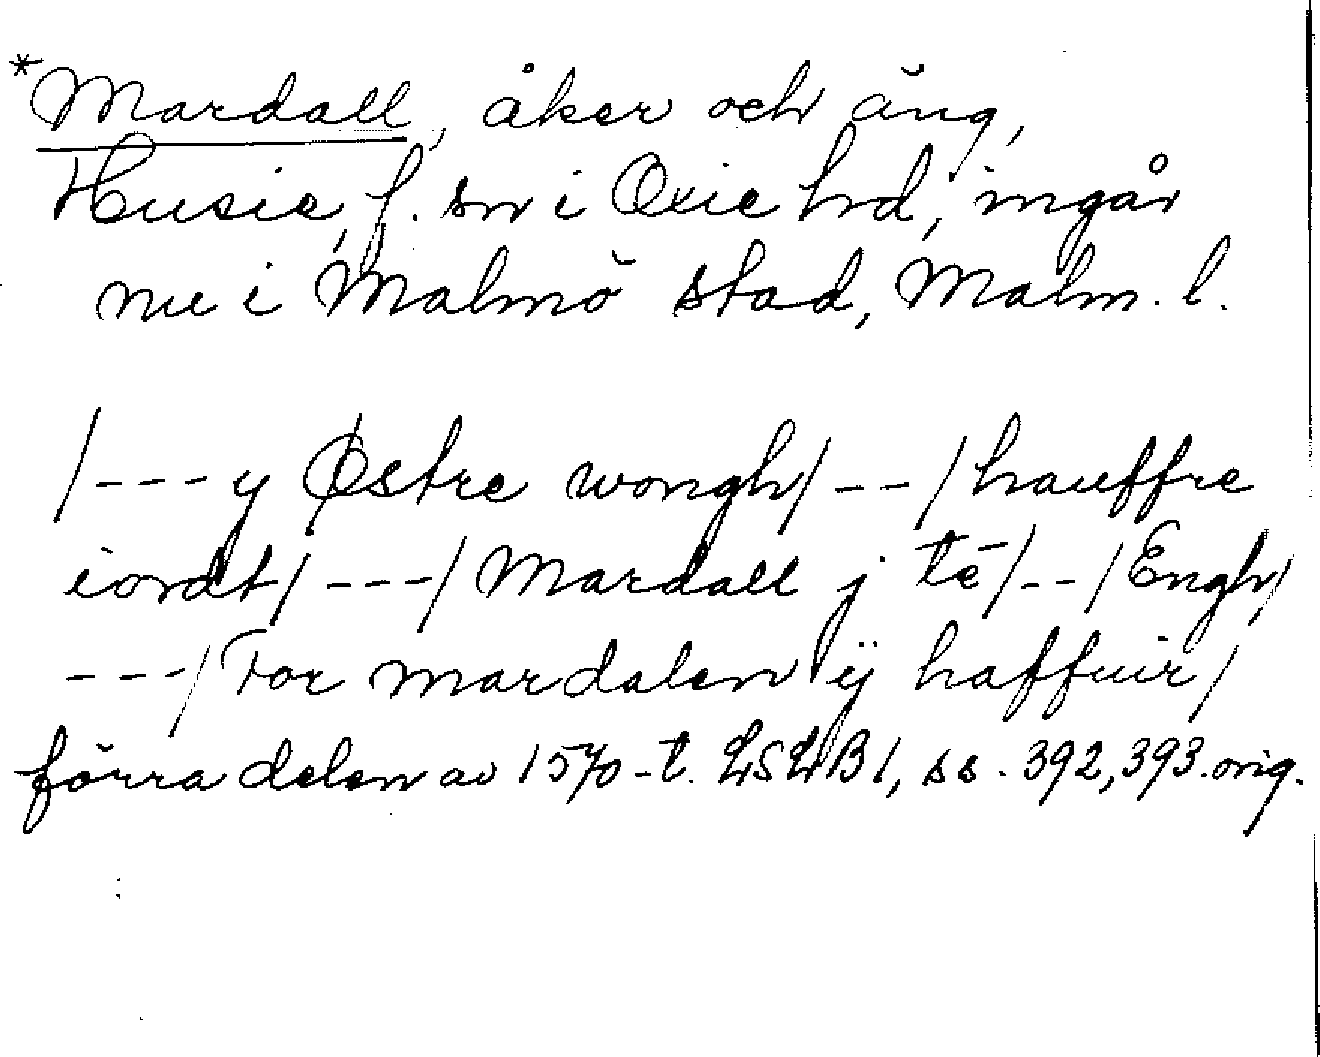 *Mardall, åker och äng,
Husie, f. sn i Oxie hd, ingår
nu i Malmö stad, Malm. l.
/---y Østre wongh/--/hauffre
iordt/---/Mardall j tē/--/Engh/
---/For mardalen ÿ haffuir/
förra delen av 1570-t. LSLB1, ss. 392, 393. orig.